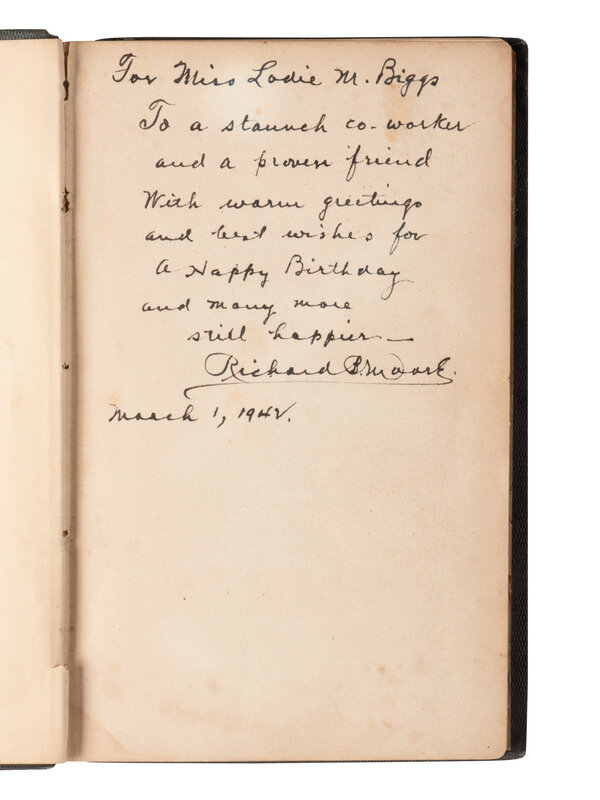 For Miss Lodie M. Biggs
To a staunch co-worker
and a proven friend
With warm greetings
and best wishes for
a Happy Birthday
and many more
still happier—
Richard B. Moore.
March 1, 1942.